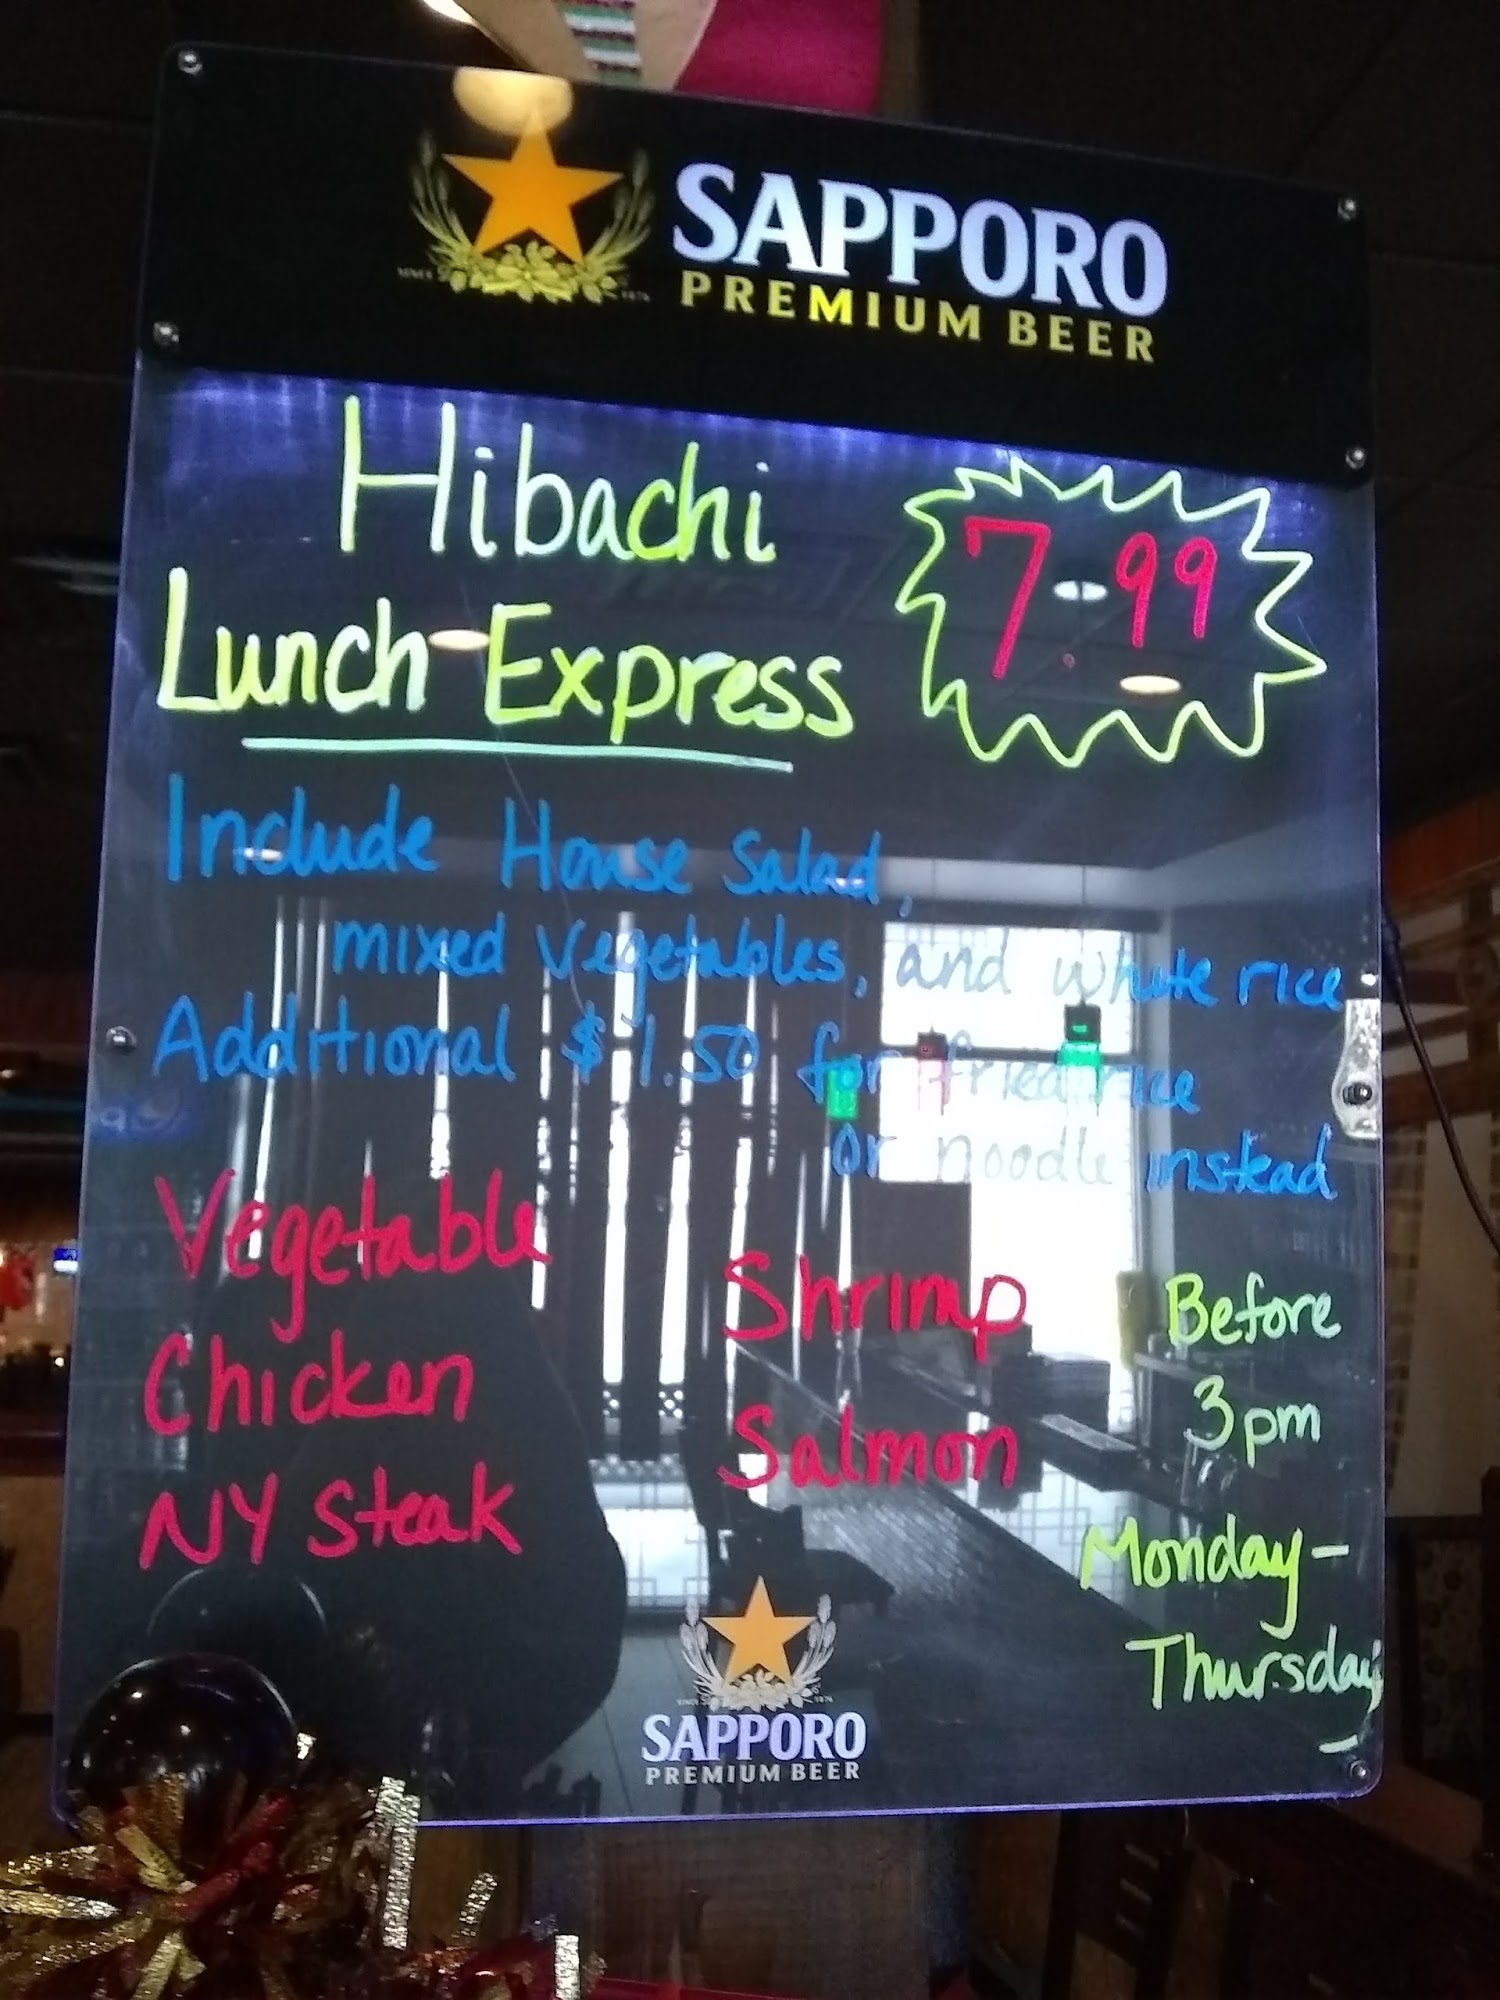 SINCE 1876
SAPPORO
PREMIUM BEER
Hibachi
Lunch Express
7.99
Include House Salad,
mixed vegetables, and white rice
Additional $1.50 for fried rice
or noodle instead
Vegetable
Chicken
NY Steak
Shrimp
Salmon
Before
3pm
Monday-
Thursday
SINCE 1876
SAPPORO
PREMIUM BEER